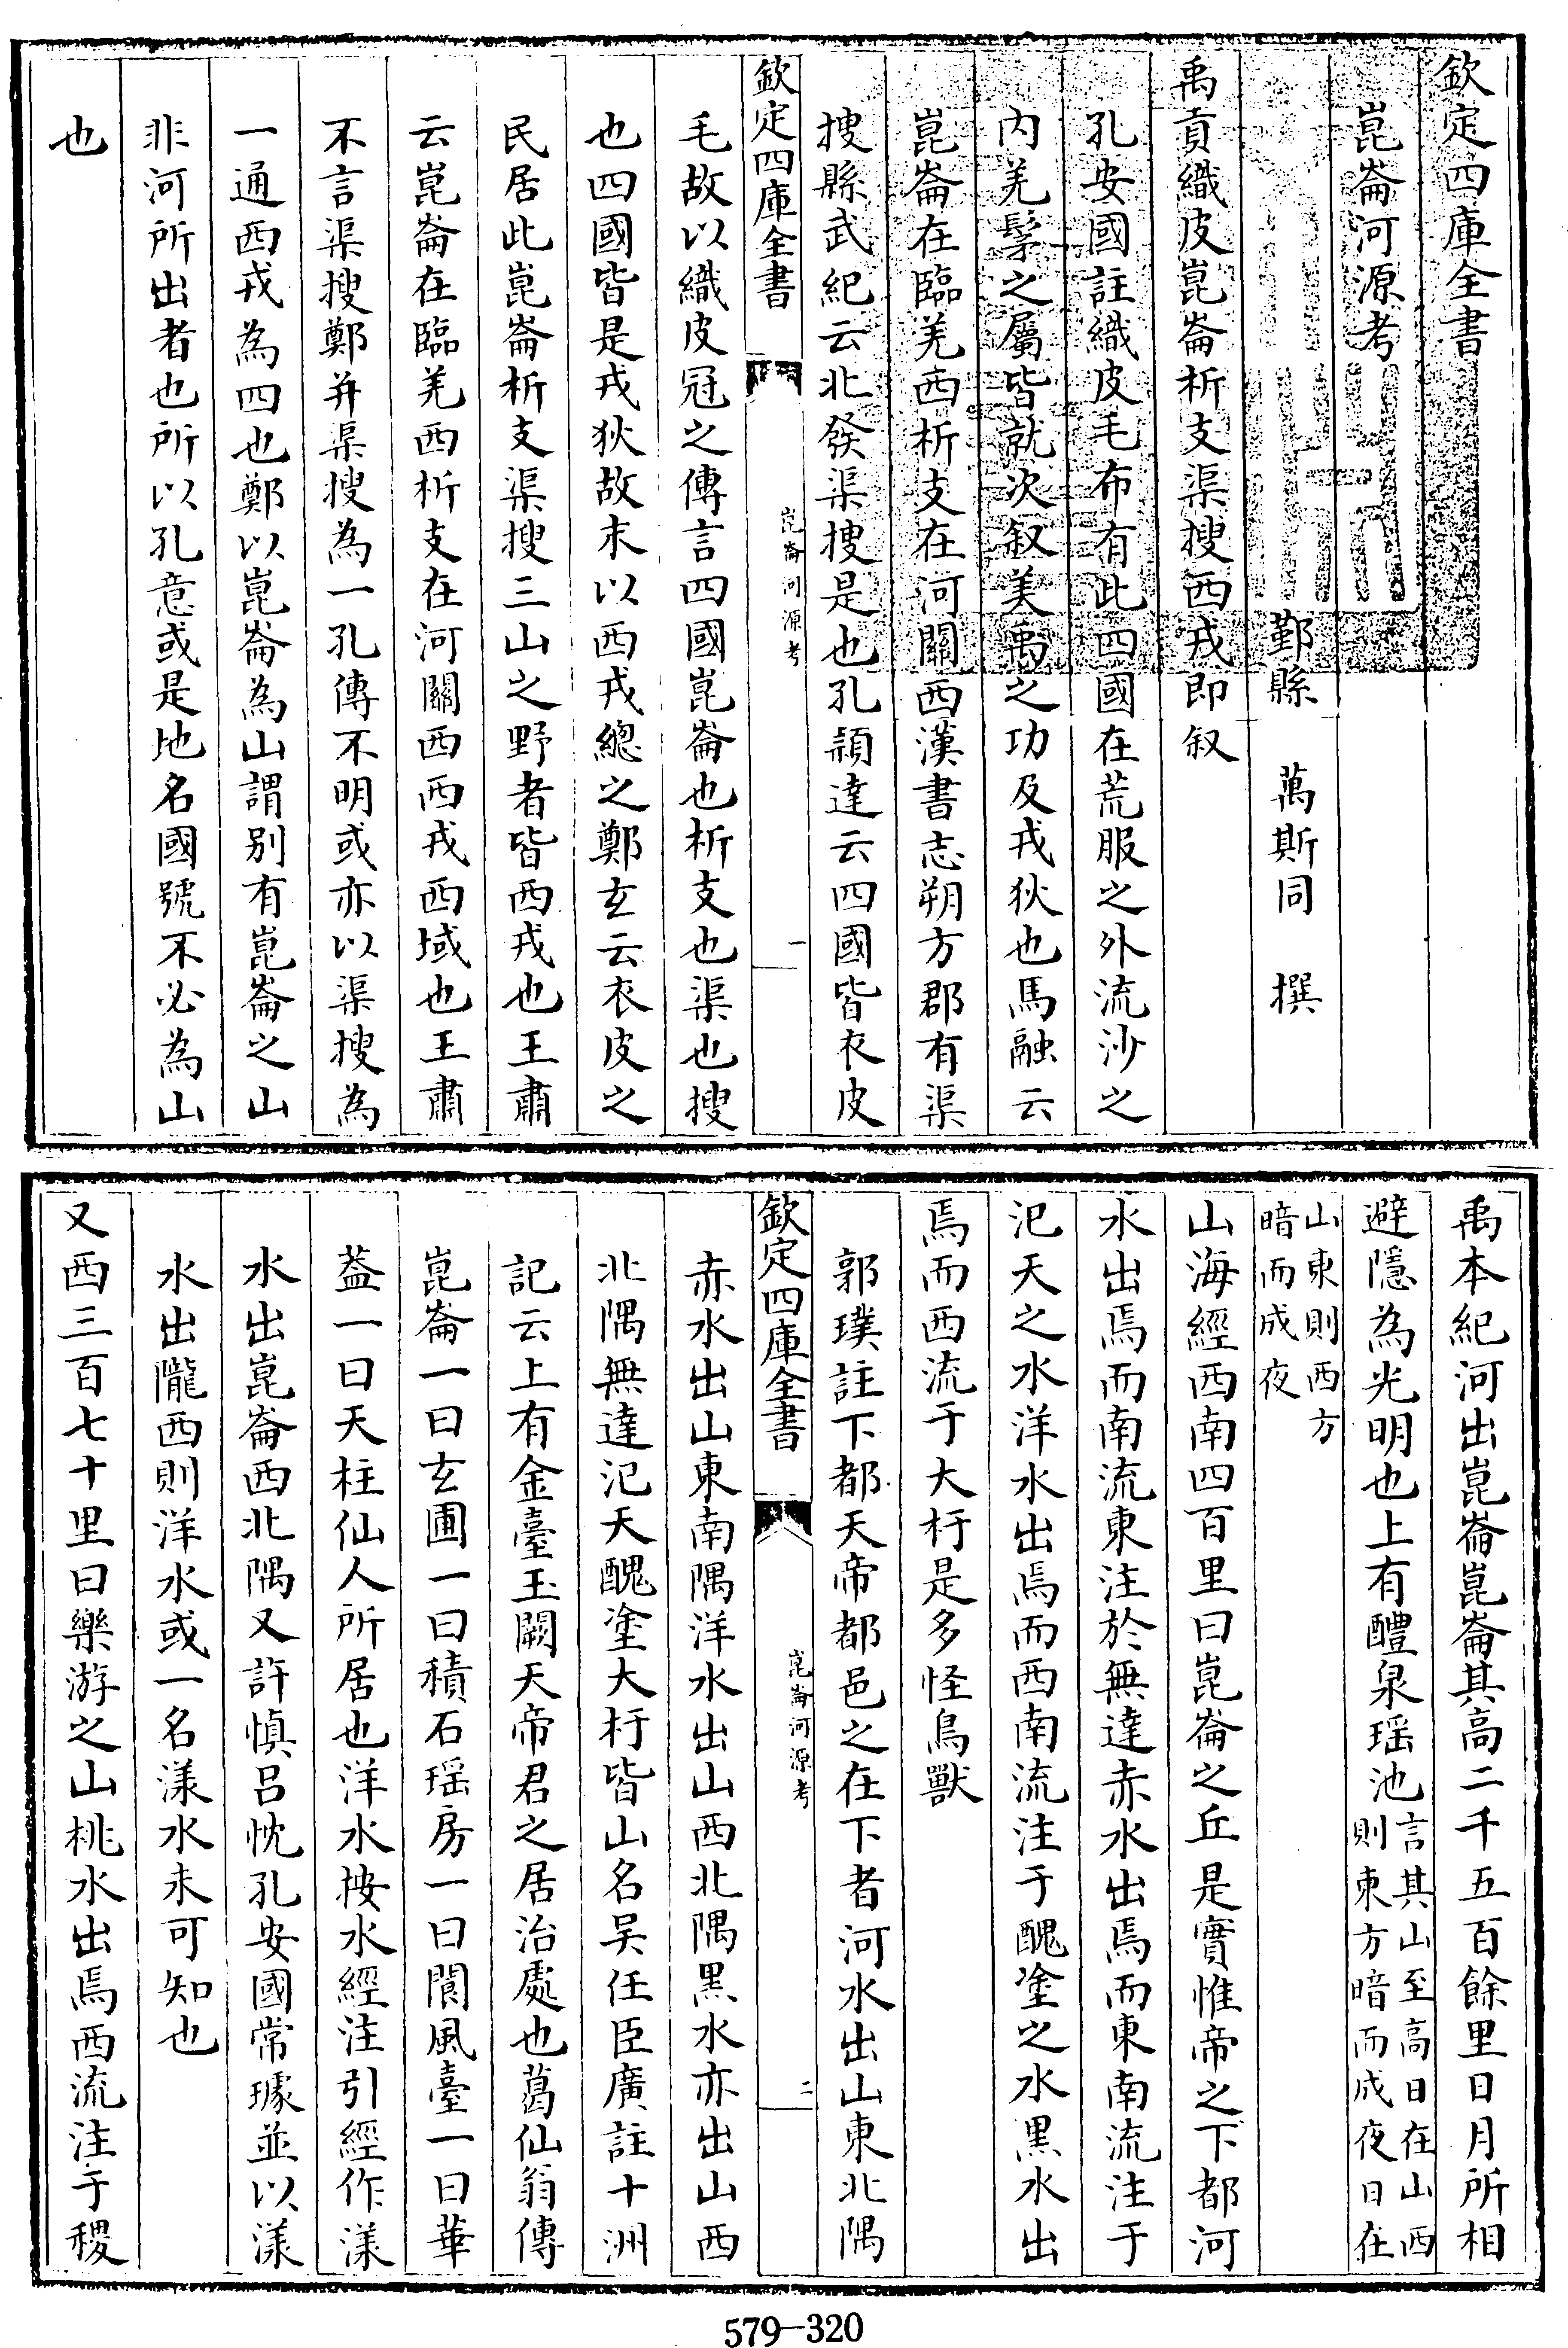 欽定四庫全書
崑崙河源考
鄞縣　萬斯同　撰
禹貢織皮崑崙析支渠搜西戎即叙
孔安國註織皮毛布有此四國在荒服之外流沙之
内羌髳之屬皆就次叙美禹之功及戎狄也馬融云
崑崙在臨羌西析支在河關西漢書志朔方郡有渠
搜縣武紀云北發渠搜是也孔頴達云四國皆衣皮
欽定四庫全書
崑崙河源考
一
毛故以織皮冠之傳言四國崑崙也析支也渠也搜
也四國皆是戎狄故末以西戎總之鄭玄云衣皮之
民居此崑崙析支渠搜三山之野者皆西戎也王肅
云崑崙在臨羌西析支在河關西西戎西域也王肅
不言渠搜鄭并渠搜為一孔傳不明或亦以渠搜為
一通西戎為四也鄭以崑崙為山謂别有崑崙之山
非河所出者也所以孔意或是地名國號不必為山
也
禹本紀河出崑崙崑崙其高二千五百餘里日月所相
避隱為光明也上有醴泉瑶池言其山至高日在山西則東方暗而成夜日在
山東則西方暗而成夜
山海經西南四百里曰崑崙之丘是實惟帝之下都河
水出焉而南流東注於無達赤水出焉而東南流注于
汜天之水洋水出焉而西南流注于醜塗之水黑水出
焉而西流于大杅是多怪鳥獸
郭璞註下都天帝都邑之在下者河水出山東北隅
欽定四庫全書
崑崙河源考
二
赤水出山東南隅洋水出山西北隅黑水亦出山西
北隅無達汜天醜塗大杅皆山名吴任臣廣註十洲
記云上有金臺玉闕天帝君之居治處也葛仙翁傳
崑崙一曰玄圃一曰積石瑶房一曰閬風臺一曰華
葢一曰天柱仙人所居也洋水按水經注引經作漾
水出崑崙西北隅又許慎吕忱孔安國常璩並以漾
水出隴西則洋水或一名漾水未可知也
又西三百七十里曰樂游之山桃水出焉西流注于稷
579-320